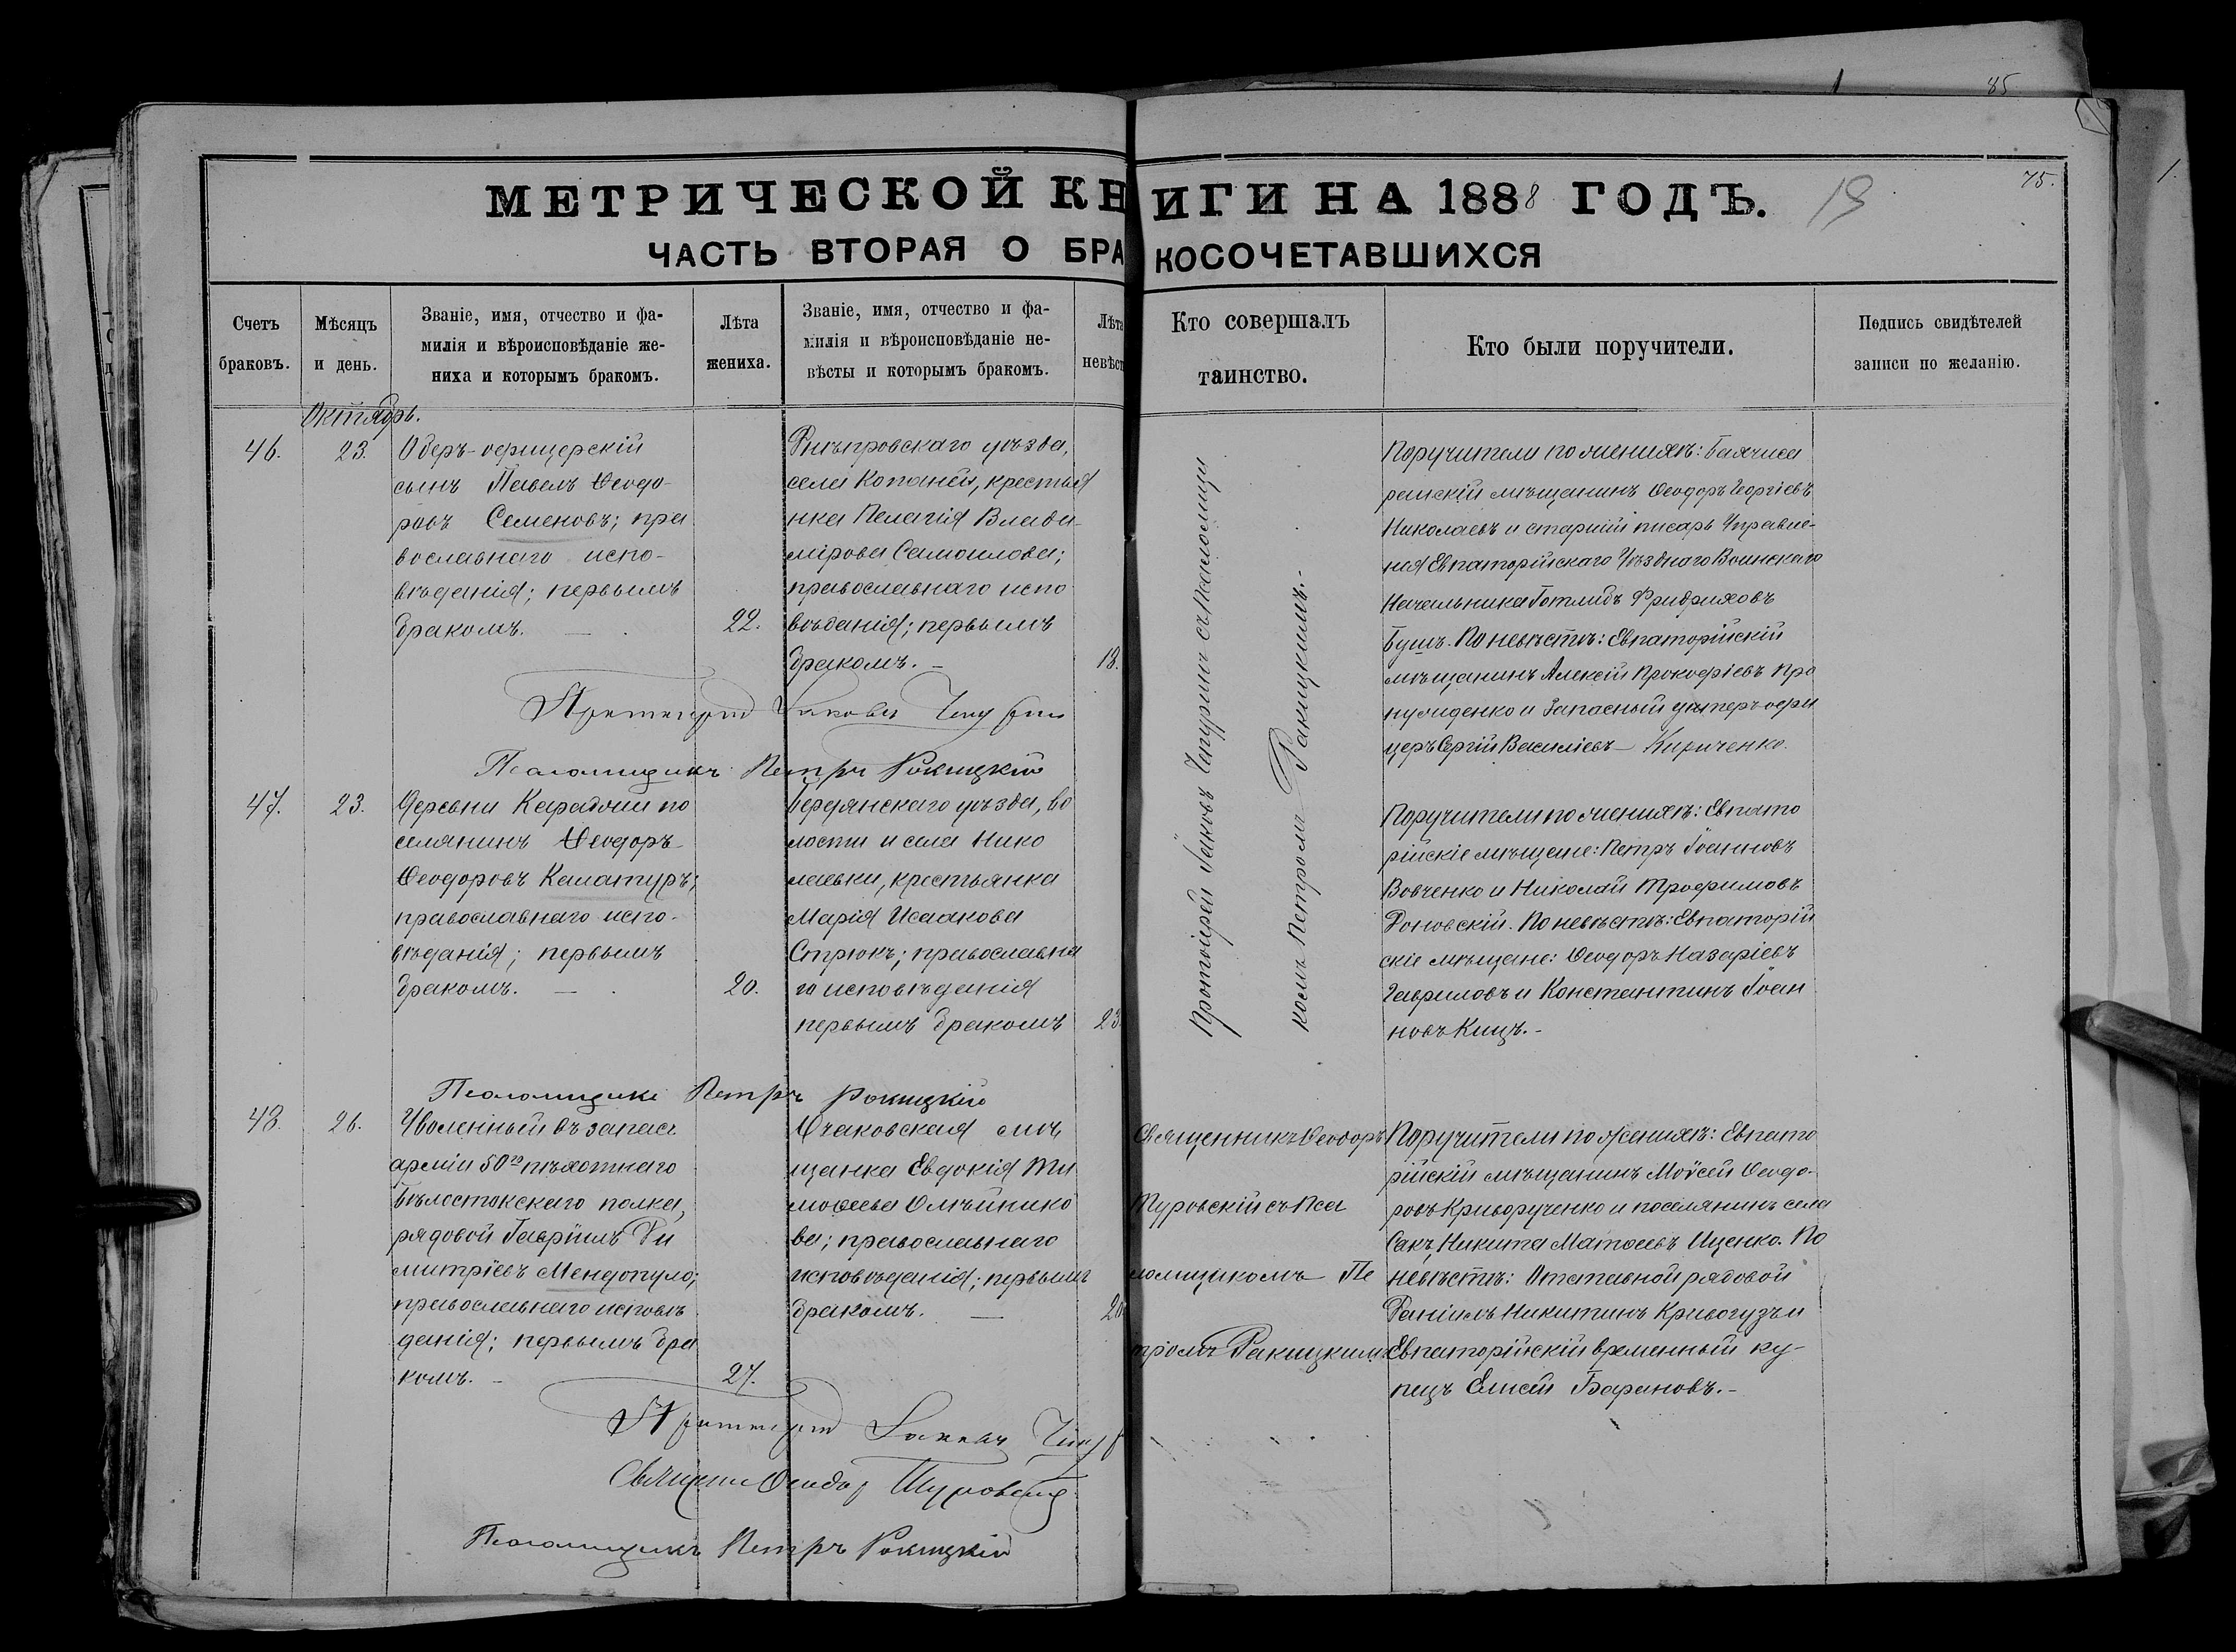 85
75.
МЕТРИЧЕСКОЙ КНИГИ НА 1888 ГОДЪ.
19
ЧАСТЬ ВТОРАЯ О БРАКОСОЧЕТАВШИХСЯ
Счетъ
браковъ.
Мѣсяцъ
и день.
Званіе, имя, отчество и фа-
милія и вѣроисповѣданіе же-
ниха и которымъ бракомъ.
Лѣта
жениха.
Званіе, имя, отчество и фа-
милія и вѣроисповѣданіе не-
вѣсты и которымъ бракомъ.
Лѣта
невѣст
Кто совершалъ
таинство.
Кто были поручители.
Подпись свидѣтелей
записи по желанію.
Октябрь.
46.
23.
Оберъ-офицерскій
сынъ Павелъ Ѳеодо-
ровъ Семеновъ; пра
вославнаго испо-
вѣданія; первымъ
бракомъ.
22.
Днѣпровскаго уѣзда,
села Копаней, крестья
нка Пелагія Влади-
мірова Самоилова;
православнаго испо
вѣданія; первымъ
бракомъ.
18.
Протоіерей Іаковъ Чепурин съ Псаломщи
комъ Петромъ Ракицкимъ.
Поручители по женихѣ:
мѣщанинъ Ѳеодоръ Георгіевъ
Николаевъ и старшій писарь Управле-
нія Евпаторійскаго Уѣзднаго Воинскаго
Начальника Готлибъ Фридриховъ
Бушъ. По невѣстѣ: Евпаторійскій
мѣщанинъ Алексій Прокофіевъ
и Запасный унтеръ-офи
церъ Сергій Василіевъ Кириченко.
Протоіерей Іаковъ
Псаломщикъ Петръ Ракицкій
47.
23.
Деревни по
селянинъ Ѳеодоръ
Ѳеодоровъ Каматуръ;
православнаго испо-
вѣданія; первымъ
бракомъ.
20.
Бердянскаго уѣзда, во
лости и села Нико
лаевки, крестьянка
Марія Исаакова
Стрюкъ; православна
го исповѣданія
первымъ бракомъ
23
Поручители по женихѣ: Евпато
рійскіе мѣщане: Петръ Іоанновъ
Вовченко и Николай Трофимовъ
Доновскій. По невѣстѣ: Евпаторій
скіе мѣщане: Ѳеодоръ Назаріевъ
Гавриловъ и Константинъ Іоан
новъ Кицъ.
Псаломщикъ Петръ Ракицкій
48.
26.
Уволенный въ запасъ
арміи 50го пѣхотнаго
Бѣлостокскаго полка,
рядовой Гавріилъ Ди
митріевъ Мендопуло;
православнаго исповѣ
данія; первымъ бра
комъ.
27.
Очаковская мѣ
щанка Евдокія Ти
моѳеева Олѣйнико
ва; православнаго
исповѣданія; первымъ
бракомъ.
20
Священникъ Ѳеодоръ
Туровскій съ Пса
ломщикомъ Пе
тромъ Ракицкимъ
Поручители по женихѣ: Евпато
рійскій мѣщанинъ Моѵсей Ѳеодо-
ровъ Криворученко и поселянинъ села
Сакъ, Никита Матѳеевъ Иценко. По
невѣстѣ: Отставной рядовой
Даніилъ Никитинъ Кривогузъ и
Евпаторійскій временный ку-
пецъ Елисей Барановъ.
Протоіерей Іаковъ
Священ Ѳеодор Туровскій
Псаломщикъ Петръ Ракицкій